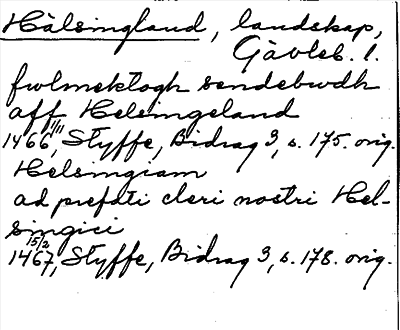 Hälsingland, landskap,
Gävleb. l.
fwlmektogh sendebwdh
aff Helsingeland
1466 1/11, Styffe, Bidrag 3, s. 175. orig.
Helsingiam
ad prefati cleri nostri Hel-
singici
1467 15/2, Styffe, Bidrag 3, s. 178. orig.